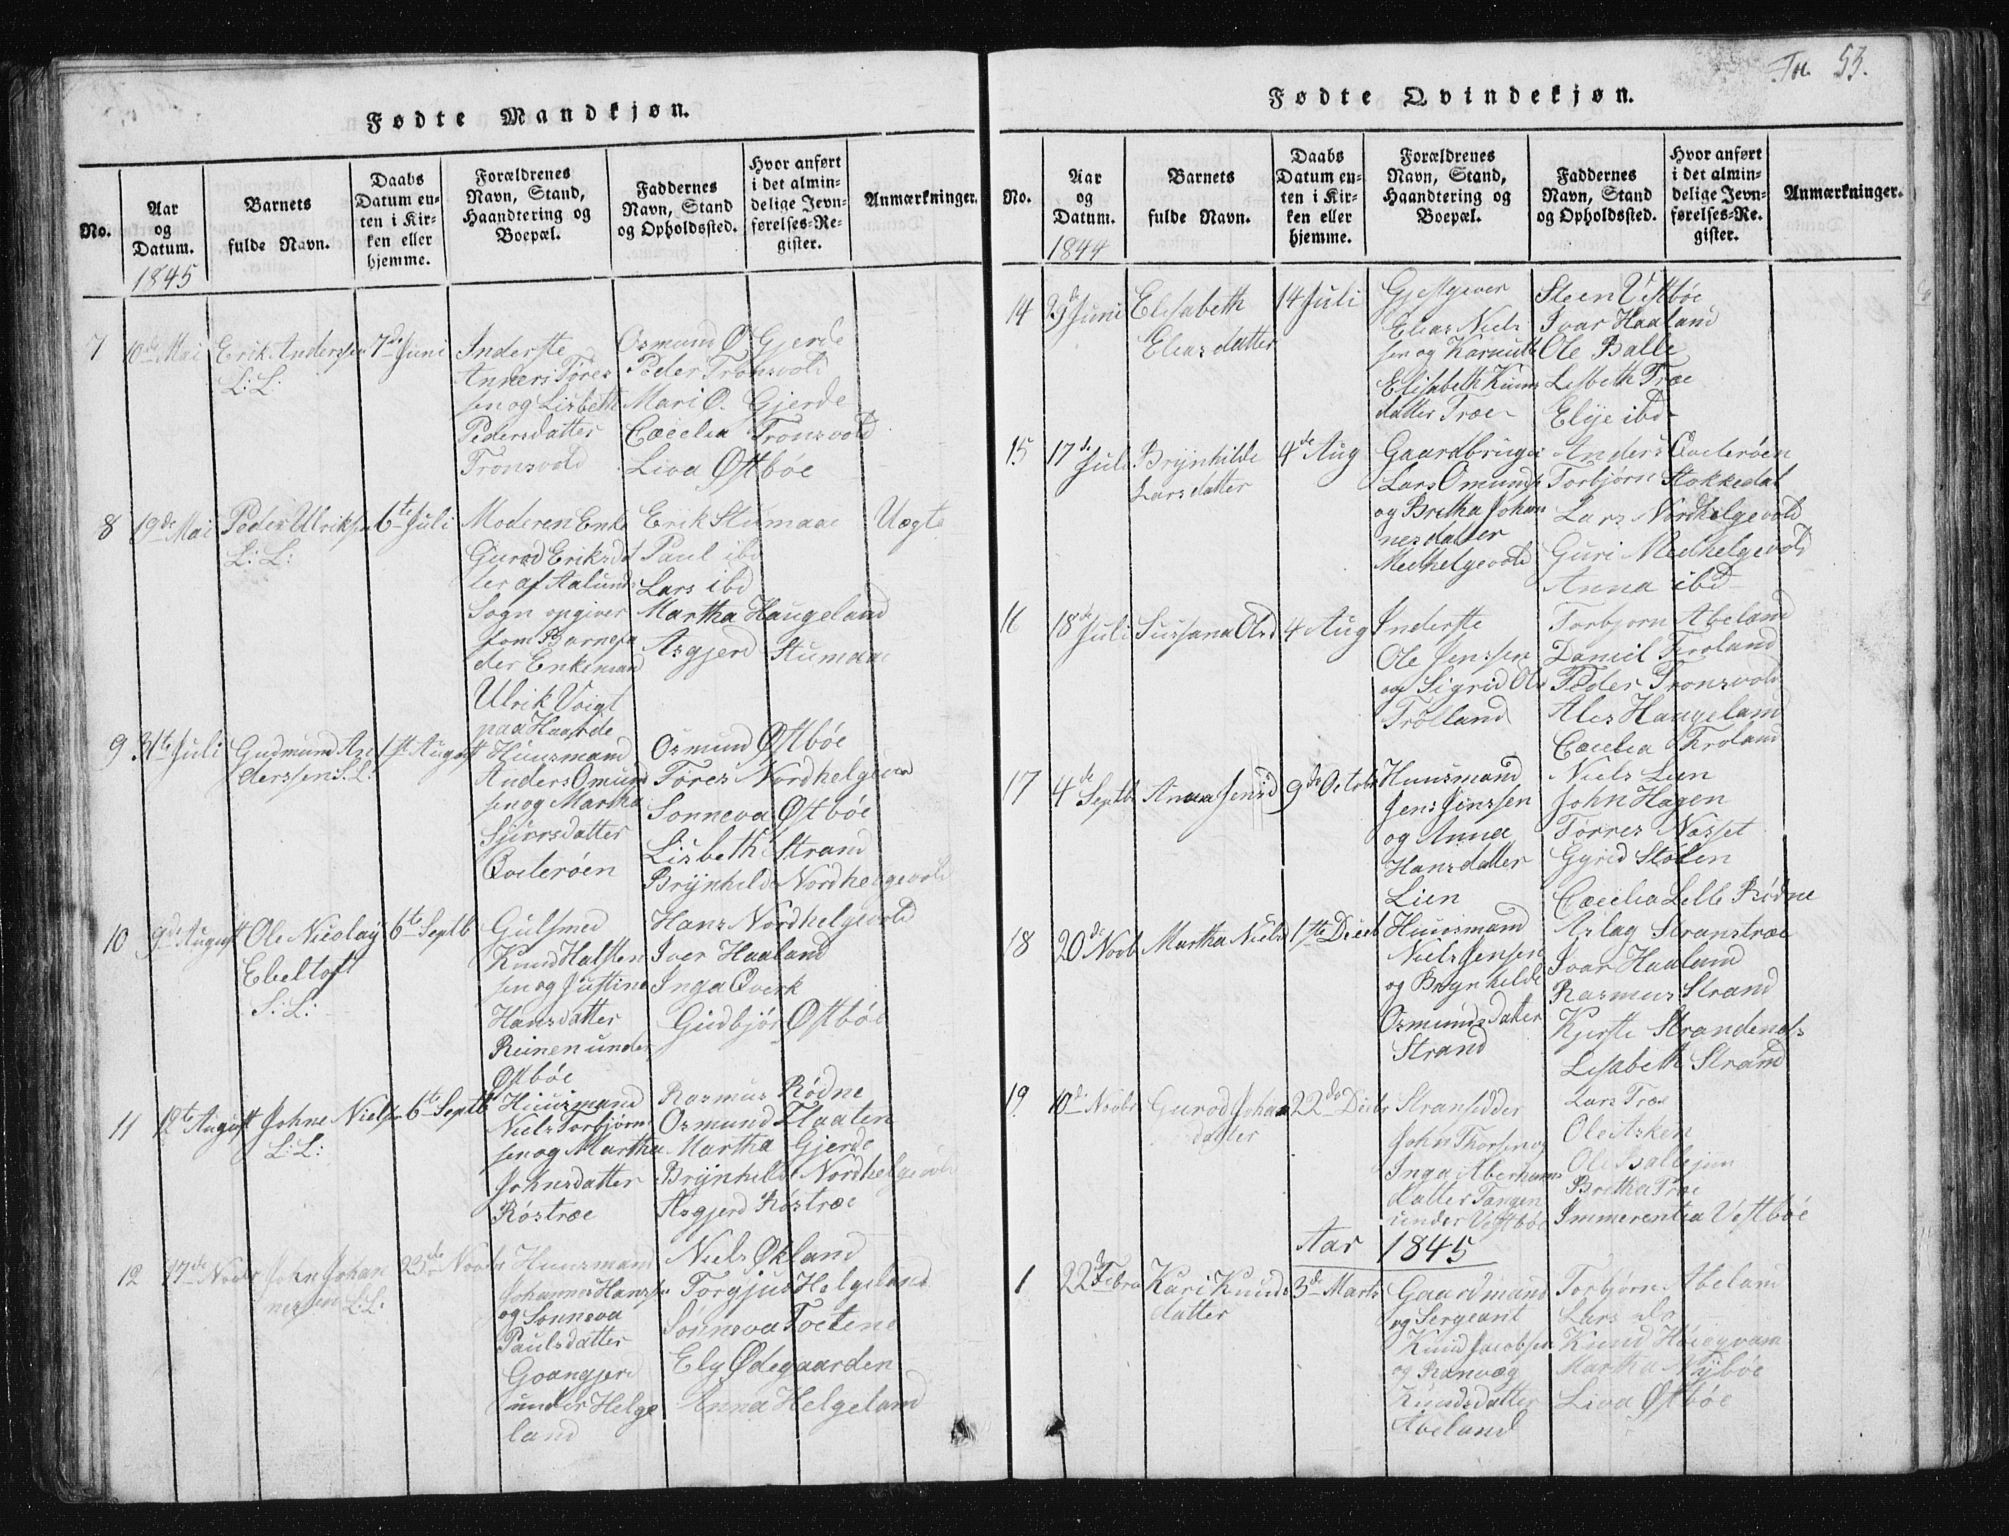 Fol. 53.
Fødte Mandkjøn.
No.
Aar og Datum.
Barnets fulde Navn.
Daabs Datum enten i Kirken eller hjemme.
Forældrenes Navn, Stand, Haandtering og Boepæl.
Faddernes Navn, Stand og Opholdsted.
Hvor anført i det almindelige Jevnførelses-Register.
Anmærkninger.
1845
7
10de Mai
Erik Anderssen
L: L:
7de Juni
Inderste
Anners Tores
sen og Lisbeth
Pedersdatter
Tronsvold
Osmund O Gjerde
Peder Tronsvold
Mari O. Gjerde
Cæcelia Tronsvold
Liva Østbøe
8
19de Mai
Peder Ulriksen
L: L:
6te Juli
Moderen Enke
Gurod Eriksdat
ter af Aalunds
Sogn opgiver
som Barnefa
der Enkemand
Ulrik Voigt
paa Haarde
Erik Stumoae
Paul ibd
Lars ibd
Martha Haugeland
Asgjerd Stumaae
Uægte
9
31te Juli
Gudmund An
derssen S. L:
1ste August
Huusmand
Anders Omund
sen og Martha
Sjursdatter
Qveterøen
Osmund Østbøe
Tores Nordhelgevold
Sonneva Østbøe
Lisbeth Strand
Brynhilde Nordhelgevold
10
9de August
Ole Nicolay
Ebeltoft
S: L:
6te Septb
Gulsmed
Knud Halsten
sen og Justine
Hansdatter
Reinen under
Østbøe
Hans Nordhelgevold
Iver Haaland
Inga Qverk
Gudbjør Østbøe
11
12te August
Johne Nielsen
L: L:
6te Septb
Huusmand
Niels Torbjørn
sen og Martha
Johnsdatter
Röstræe
Rasmus Rødne
Osmund Flaaten
Martha Gjerde
Brynhilde Nordhelgevold
Asgjerd Röstræe
12
17de Novbr
John Johan
nessen L: L:
23de Novbr
Huusmand
Johannes Hanssen
og Sonneva
Paulsdatter
Goangjerd
under Helge
land
Niels Økland
Torgjus Helgeland
Sonneva Toetene
Ely Ødegaarden
Anna Helgeland
Fødte Qvindekjøn.
No.
Aar og Datum.
Barnets fulde Navn.
Daabs Datum enten i Kirken eller hjemme.
Forældrenes Navn, Stand, Haandtering og Boepæl.
Faddernes Navn, Stand og Opholdsted.
Hvor anført i det almindelige Jevnførelses-Register.
Anmærkninger.
1844
14
Juni
Elisabeth
Elias datter
14 Juli
Gjestgever
Elias Niels
sen og
Elisabeth Knuds
datter Træe
Steen Vestbøe
Ivar Haaland
Ole Balle
Lisbeth Træe
Elije ibd
15
17de Juli
Brynhilde
Larsdatter
4de Aug
Gaardbruger
Lars Omunds
og Britha Johan
nesdatter
Medhelgevold
Anders Qveterøen
Torbjørn Stokkedal
Lars Nordhelgevold
Guri Medhelgevold
Anna ibd
16
18de Juli
Sussana Olsd
4 Aug
Inderste
Ole Jenssen
og Sigrid Ols
Trolland
Torbjorn Abeland
Daniel Froland
Peder Tronsvold
Ales Haugeland
Cæcelia Froland
17
4de Septb
Anna Jensd
9de Octobr
Huusmand
Jens Jenssen
og Anna
Hansdatter
Lien
Niels Lien
John Hagen
Torres Næsset
Gyrid Stølen
Cæcelia Lelle Rödne
18
20de Novb
Martha Nielsd
1ste Decb
Huusmand
Niels Jensen
og Brynhilde
Osmundsdatter
Strand
Aslag Stranstræe
Ivar Haaland
Rasmus Strand
Kjerste Strandenæs
Lisabeth Strand
19
10de Novbr
Gurod Johns
datter
22de Decbr
Stransidder
John Thorsen og
Inga Aberhams
datter Tangen
under Vestbøe
Lars Træe
Ole Asken
Ole Balle jun
Britha Træe
Immerentia Vestbøe
Aar 1845
1
22de Febra
Kari Knuds
datter
3de Marts
Gaardmand
og Sergeant
Knud Jacobsen
og Ranvæg
Knudsdatter
Abeland
Torbjørn Abeland
Lars do
Knud Høiegvam
Martha Nyboe
Liva Østbøe